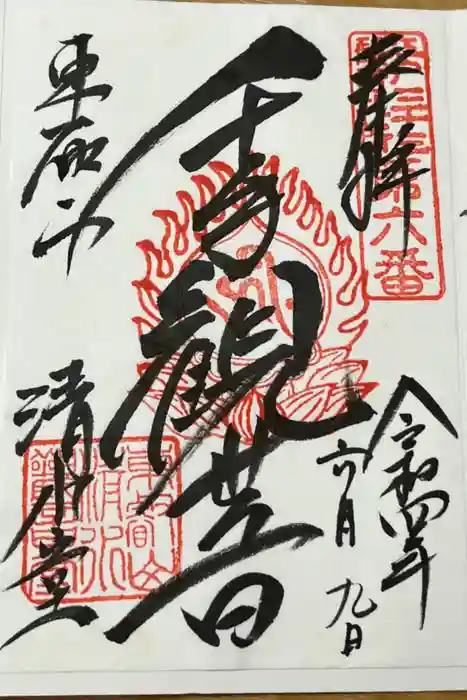 奉拝
第六番
令和四年
六月九日
千手観音
東叡山
清水堂